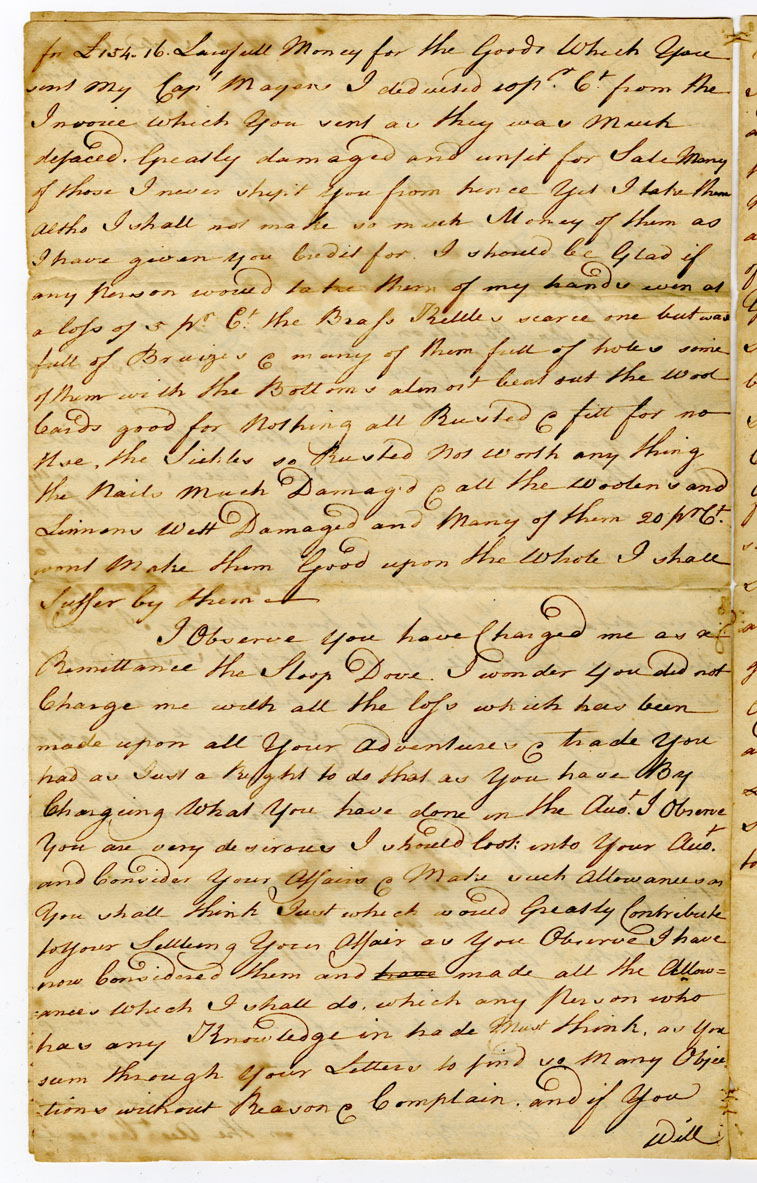 for £154.16. Lawfull Money for the Goods Which You
sent My Capt Magens I deducted 10 pr. Ct. from the
Invoice which You sent as they was Much
defaced. Greatly damaged and unfit for Sale Many
of those I never shipt You from hence Yet I take them
altho I shall not make so much Money of them as
I have given you Credit for. I should be Glad if
any Person would take them of my hands even at
a loss of 5 pr. Ct. the Brass Kettles scarce one but was
full of Bruizes & many of them full of holes some
of them with the Bottoms almost beat out the Wool
Cards good for Nothing all Rusted & fitt for no
Use, the Sickles so Rusted Not worth any thing
the Nails Much Damag'd & all the Woolens and
Linnens Wett Damaged and Many of them 20 pr Ct.
wont Make them Good upon the Whole I shall
Suffer by them
I Observe You have Charged me as a
Remittance the Sloop Dove. I wonder You did not
Charge me with all the loss which has been
made upon all Your Adventures & trade You
had as Just a Right to do that as You have By
Charging What You have done in the Auot. I Observe
You are very desirous I should look into Your Auot.
and Consider Your Affairs & Make such Allowances as
You shall think Just which would Greatly Contribute
to Your Settling Your Affair as You Observe I have
now Considered them and have made all the Allow=
=ances which I shall do, which any Person who
has any Knowledge in trade Must think, as You
sum through Your Letters to find so Many Objec
-tions without Reason & Complain. and if You
Will